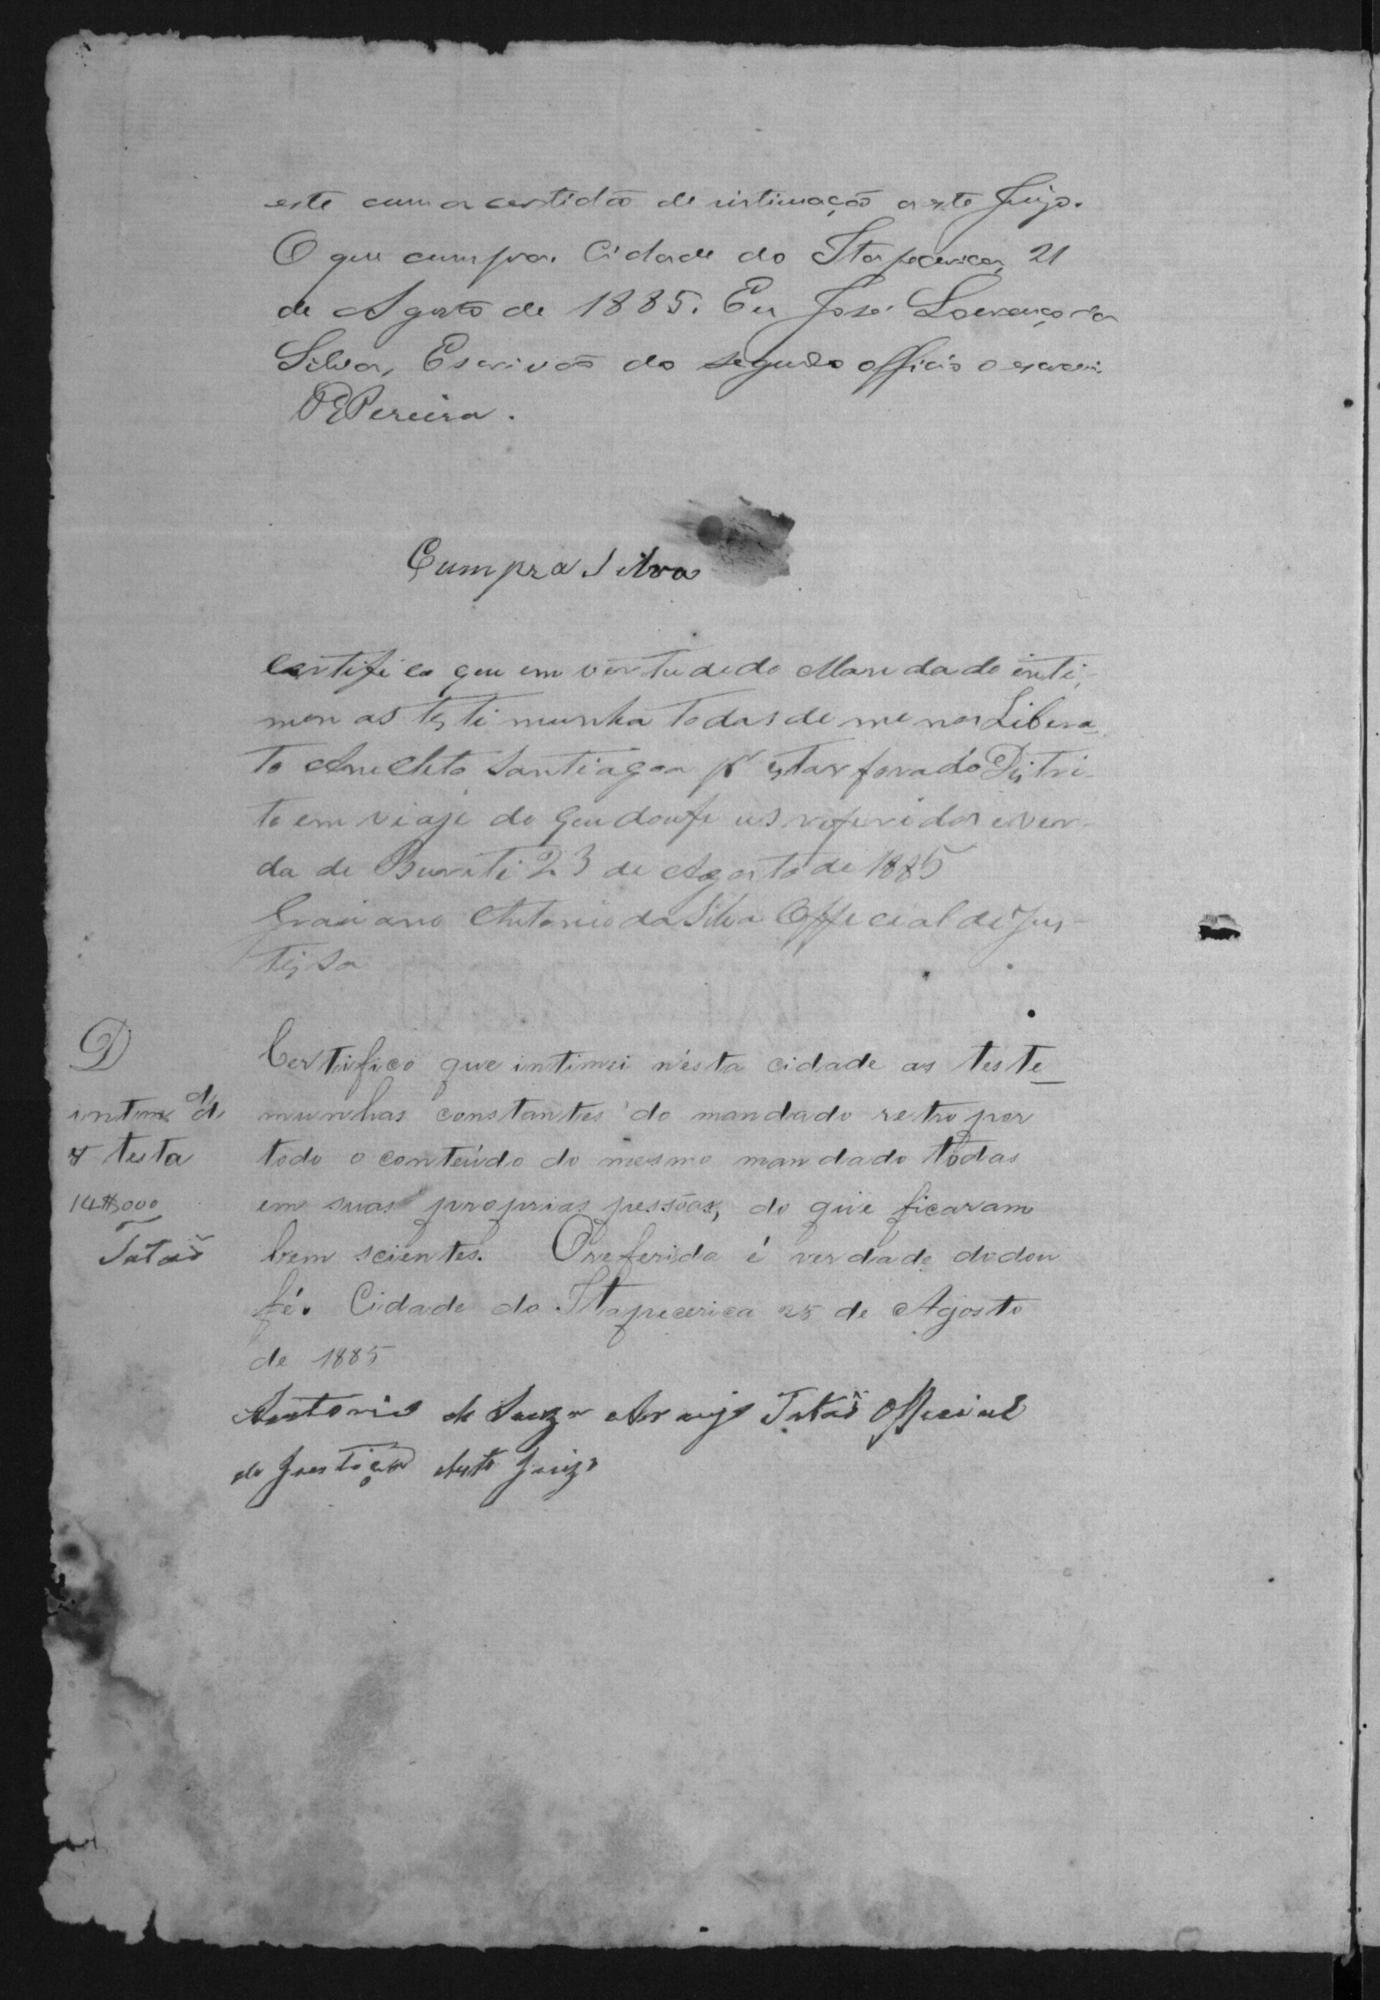 este com a certidão de intimação a este Juizo.
O que cumpra. Cidade do Itapecerica, 21
de Agosto de 1885. Eu José Lourenço da
Silva, Escrivão do segundo officio o escrevi.
Pereira.
Cumpra Silva
Certifico qeu em vertude do Mandado inti-
mei as testimunha todas de menos Libera
to Anecleto Santiagoa pr estar fora do Distri-
to em viaje do qeu dou fe us referido he ver-
da de Buriti 23 de Agosto de 1885
Graciano Antonio da Silva Official de Jus-
teisa
D
intimei
testa
14$000
Tatão
Certifico que intimei n'esta cidade as teste
munhas constantes do mandado retro por
todo o conteúdo do mesmo mandado todas
em suas proprias pessôas, do que ficaram
bem scientes. O referido é verdade do dou
fé. Cidade do Itapecerica 25 de Agosto
de 1885
Antonio de Souza Araujo Tatão Official
de Justiça deste Juizo